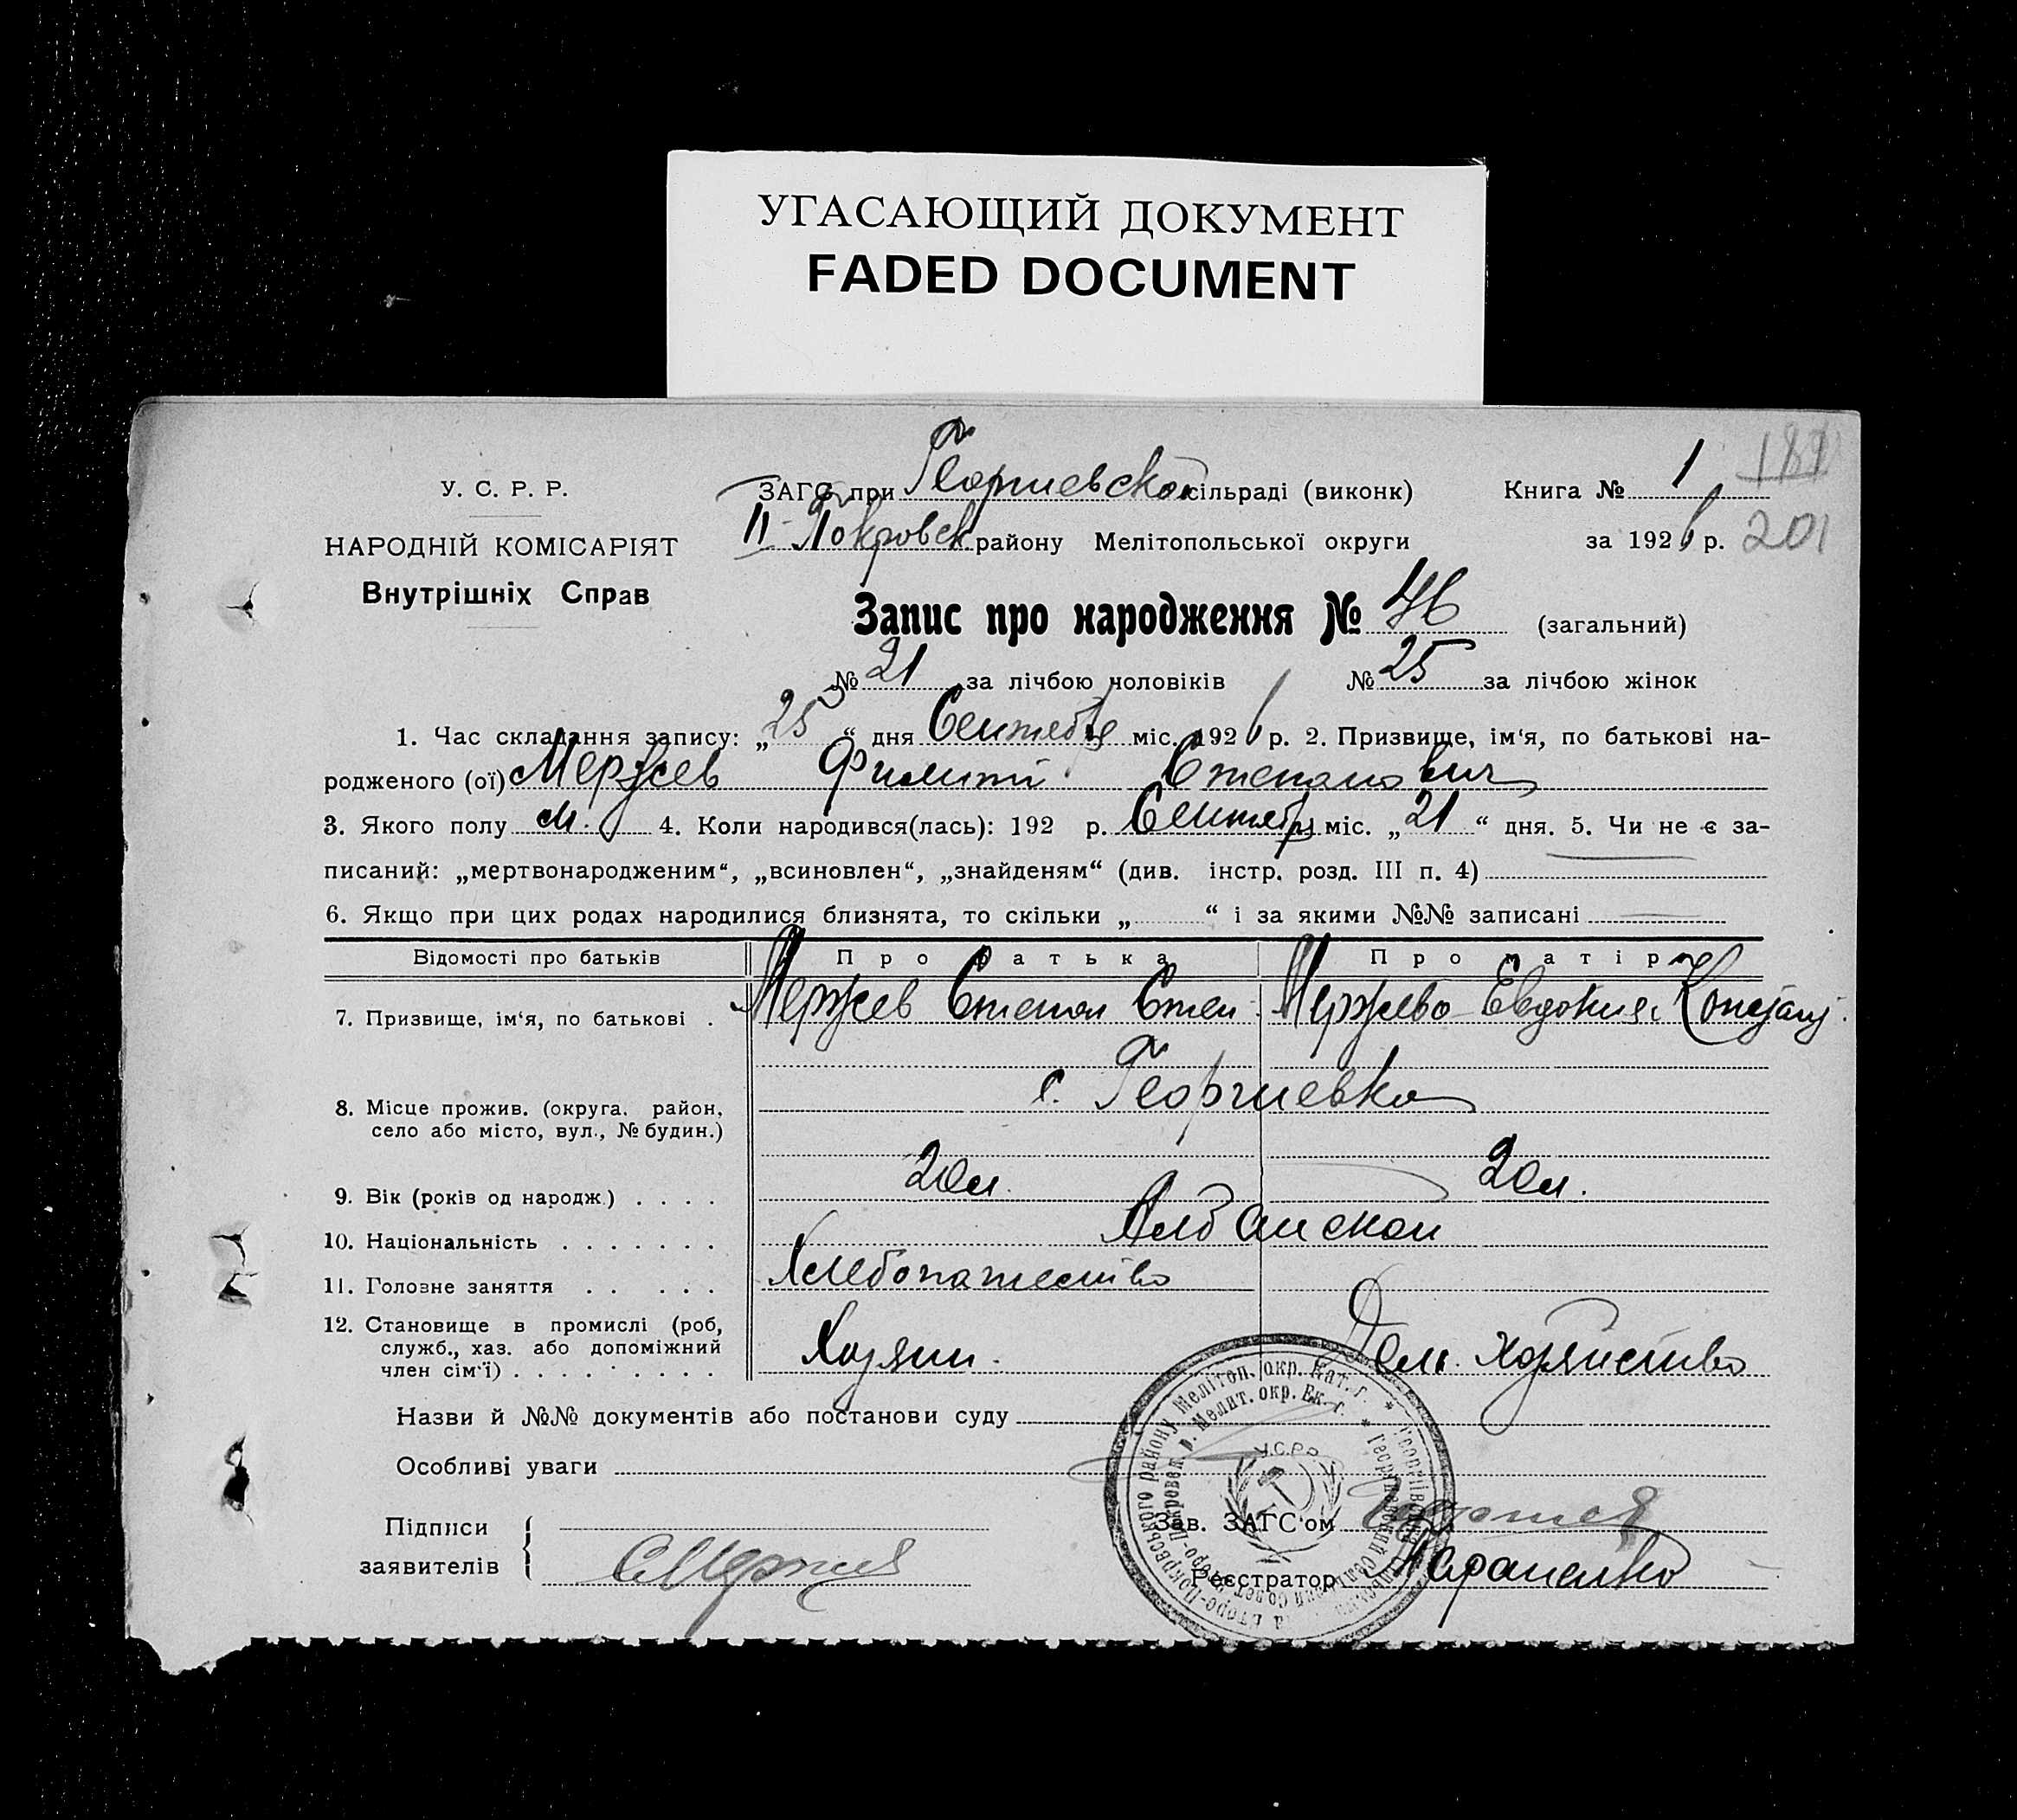 УГАСАЮЩИЙ ДОКУМЕНТ
FADED DOCUMENT
У. С. Р. Р.
НАРОДНІЙ КОМІСАРІЯТ
Внутрішніх Справ
ЗАГС при Георгиевской сільраді (виконк)
II-Покровск. району Мелітопольської округи
Книга № 1
181
за 1926 р. 201
Запис про народження № 46 (загальний)
№ 21 за лічбою чоловіків № 25 за лічбою жінок
1. Час складання запису: „25“ дня Сентября міс. 1926 р. 2. Призвище, ім‘я, по батькові на-
родженого (ої) Мержев Филипп Степанович
3. Якого полу м. 4. Коли народився(лась): 192 р. Сентябр міс. „21“ дня. 5. Чи не є за-
писаний: „мертвонародженим“, „всиновлен“, „знайденям“ (див. інстр. розд. III п. 4)
6. Якщо при цих родах народилися близнята, то скільки „ “ і за якими №№ записані
Відомості про батьків Про батька Про матір
7. Призвище, ім‘я, по батькові . Мержев Степан Степ. Мержева Евдокия
8. Місце прожив. (округа, район,
село або місто, вул., № будин.)
с. Георгиевка
9. Вік (років од народж.) . . . . 20 л. 20 л.
10. Національність . . . . . . . Албанской
11. Головне заняття . . . . . Хлебопашество
12. Становище в промислі (роб,
служб., хаз. або допоміжний
член сім‘ї) . . . . . . . .
Хозяин. Дом. хозяйство
Назви й №№ документів або постанови суду
Особливі уваги
Підписи
заявителів
Зав. ЗАГС‘ом
Реєстратор
У.С.Р.Р.